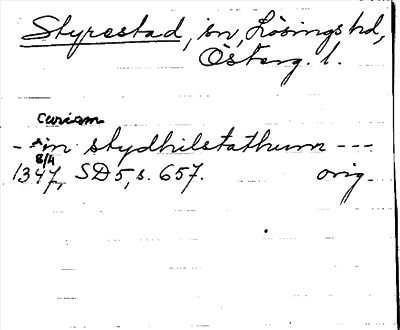 Styrestad, sn, Lösings hd,
Österg. l.
curiam
- - in stydhilstathum - - -
8/4
1347, SD 5, s. 657. orig.